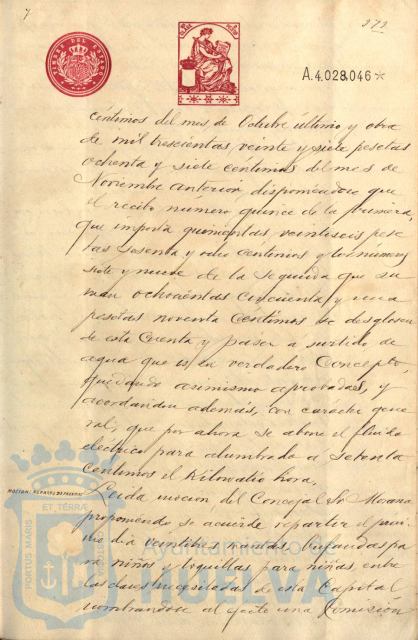 7
272
TIMBRE DEL ESTADO
A.4.028.046*
centimos del mes de Octubre último y otra
de mil trescientas veinte y siete pesetas
ochenta y siete centimos del mes de
Noviembre anterior, disponiéndose que
el recibo número quince de la primera,
que importa quinientas veintiseis pese
tas sesenta y ocho centimos y los números
siete y nueve de la segunda que su
man ochocientas cincuenta y una
pesetas noventa centimos se desglosen
de esta Cuenta y pasen a surtido de
agua que es su verdadero Concepto,
quedando asimismo aprobadas, y
acordandose además, con caracter gene
ral, que por ahora se abone el fluido
electrico para alumbrado a setenta
centimos el Kilowatio hora.
MOCION: REPARTO DE PRENDAS
Leida mocion del Concejal Sr. Morano
proponiendo se acuerde repartir el proxi
mo dia veintitres mantas, bufandas pa
ra niños y toquillas para niñas, entre
las clases necesitadas de esta Capital
nombrandose al efecto una Comisión
PORTUS MARIS ET TERRÆ
Ayuntamiento de
HUELVA